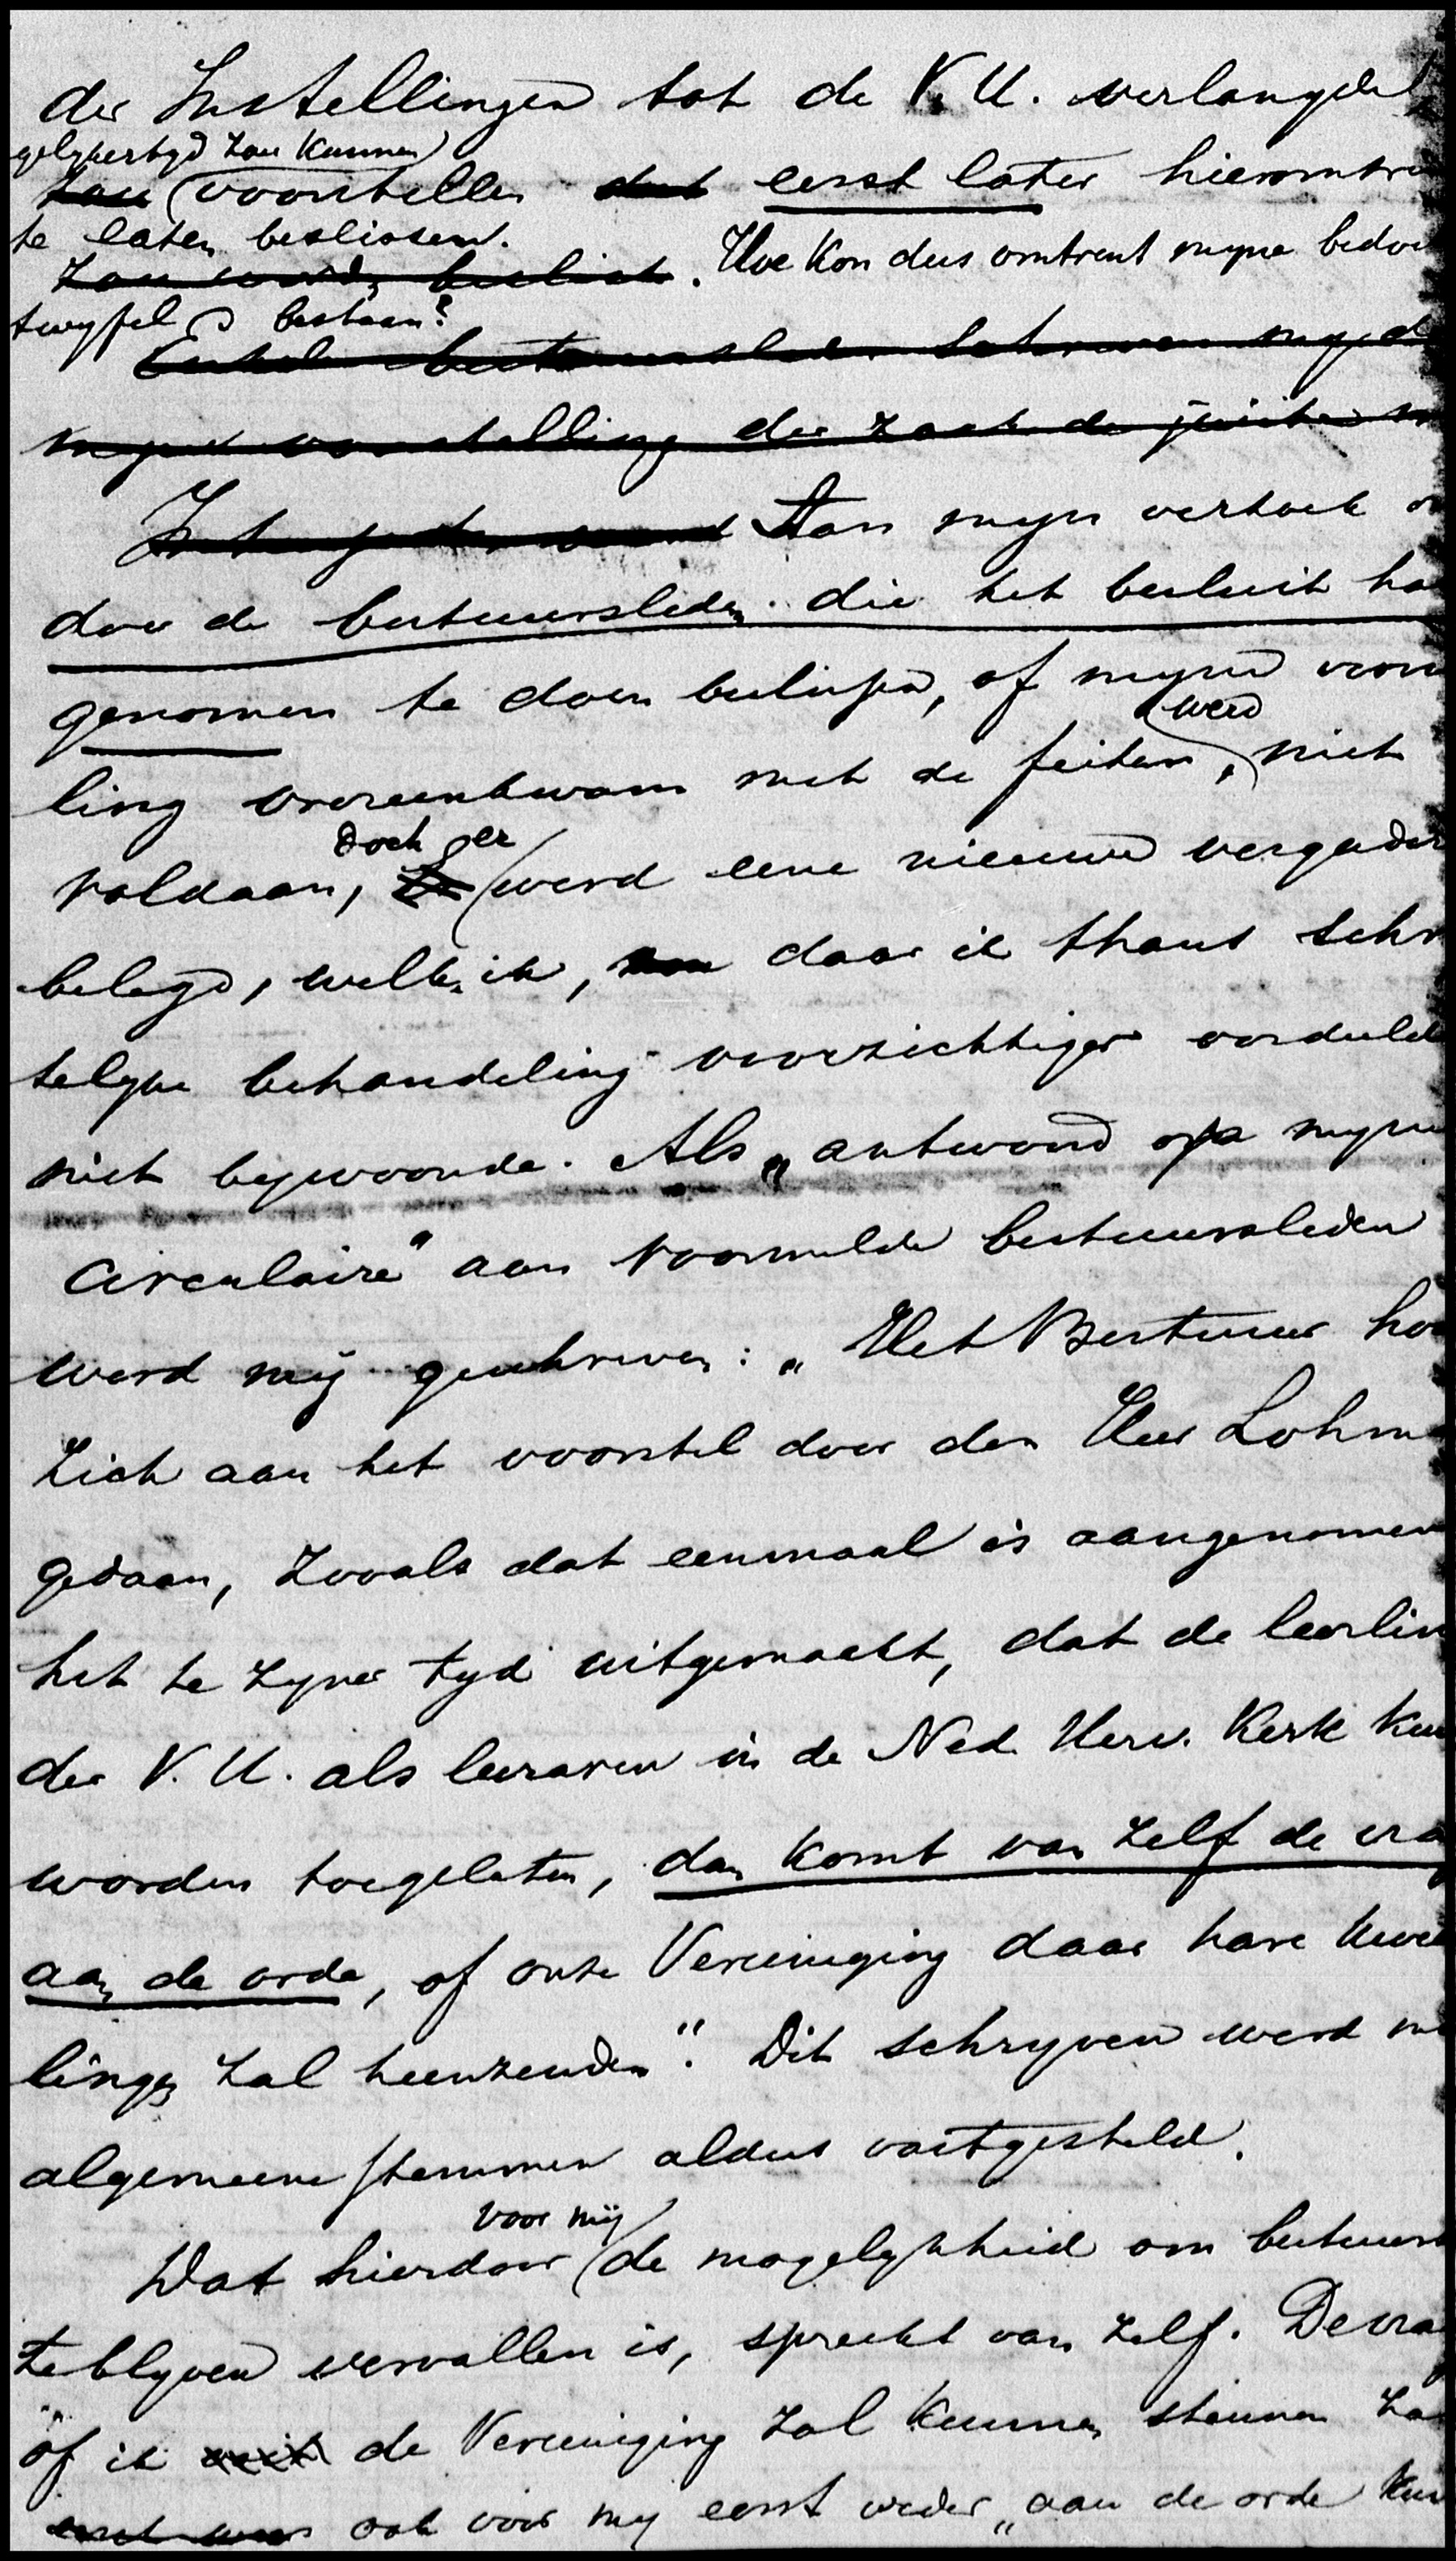 der Instellingen tot de V. U. verlangde
gelykertyd zou kunnen
zou voorstellen dat eerst later hieromtre
te laten beslissen.
zou worden beslist. Hoe kon dus omtrent myne bedoe
twyfel bestaan?
Enkele bestuursleden schreven my, d
myne voorstelling der zaak de juiste
Aan myn verzoek o
door de bestuursleden die het besluit ha
genomen te doen beslissen, of myne voors
ling overeenkwam met de feiten, werd niet
voldaan, doch er werd eene nieuwe vergader
belegd, welke ik, daar ik thans schr
telyke behandeling voorzichtiger oordeelde
niet bywoonde. Als „antwoord op myne
circulaire" aan voormelde bestuursleden
werd mij geschreven: „Het Bestuur hou
zich aan het voorstel door den Heer Lohm
gedaan, zooals dat eenmaal is aangenomen
het te zyner tyd uitgemaakt, dat de leerlin
der V. U. als leeraren in de Ned. Herv. Kerk kun
worden toegelaten, dan komt van zelf de vra
aan de orde, of onze Vereeniging daar hare kwee
lingen zal heenzenden". Dit schryven werd m
algemeene stemmen aldus vastgesteld.
Dat hierdoor voor mij de mogelykheid om bestuurs
te blyven vervallen is, spreekt van zelf. De vra
of ik ooit de Vereeniging zal kunnen steunen za
ook voor my eerst weder „aan de orde kun